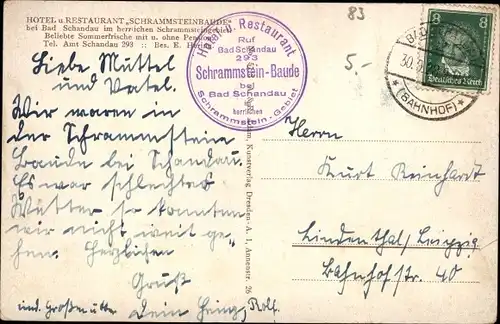 HOTEL u. RESTAURANT „SCHRAMMSTEINBAUDE"
bei Bad Schandau im herrlichen Schrammsteingebiet
Beliebte Sommerfrische mit u. ohne Pension
Tel. Amt Schandau 293 :: Bes. E.
Hotel u. Restaurant
Ruf
Bad Schandau
293
Schrammstein-Baude
bei
Bad Schandau
herrlichen
Schrammstein-Gebiet
83
5.-
8 8
Deutsches Reich
BAD
30.
(BAHNHOF)
Liebe Muttel
und Vatel.
Wir waren in
der Schrammstein
Baude bei Schandau.
Es war schlechtes
Wetter so konnten
wir nicht weit ge-
hen. Herzlichen
Gruß
und. Großmutter Dein Heinz, Rolf.
Kunstverlag Dresden-A. 1, Annenstr. 26
Herrn
Kurt Reinhardt
Lindenthal/Leipzig
Bahnhofstr. 40